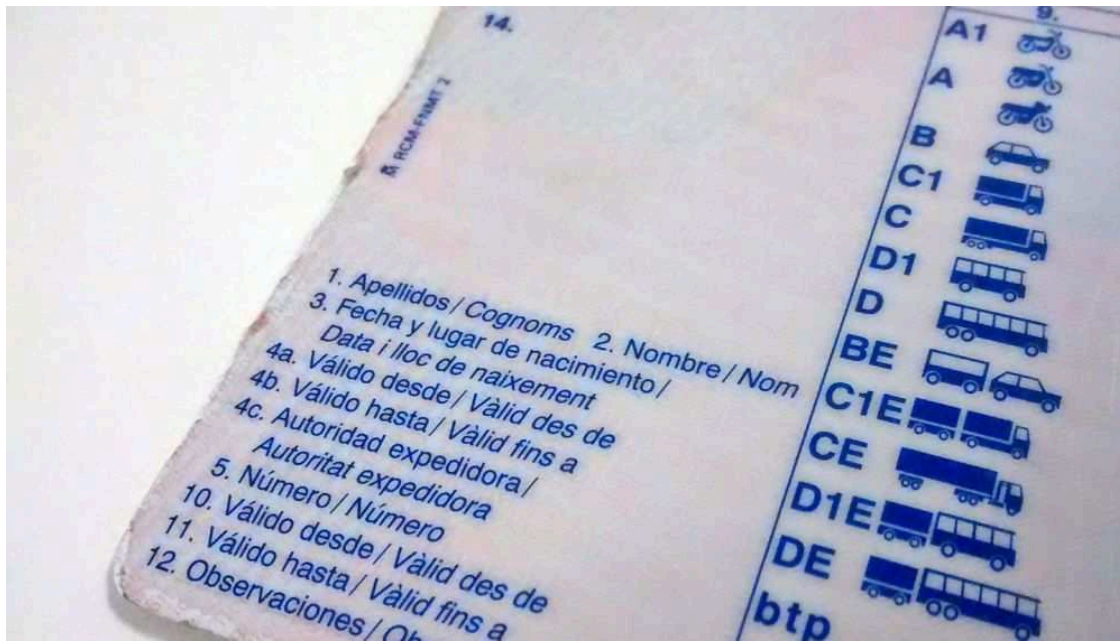 14.
RCM-FNMT
1. Apellidos / Cognoms 2. Nombre / Nom
3. Fecha y lugar de nacimiento /
Data i lloc de naixement
4a. Válido desde / Vàlid des de
4b. Válido hasta / Vàlid fins a
4c. Autoridad expedidora /
Autoritat expedidora
5. Número / Número
10. Válido desde / Vàlid des de
11. Válido hasta / Vàlid fins a
12. Observaciones /
9.
A1
A
B
C1
C
D1
D
BE
C1E
CE
D1E
DE
btp